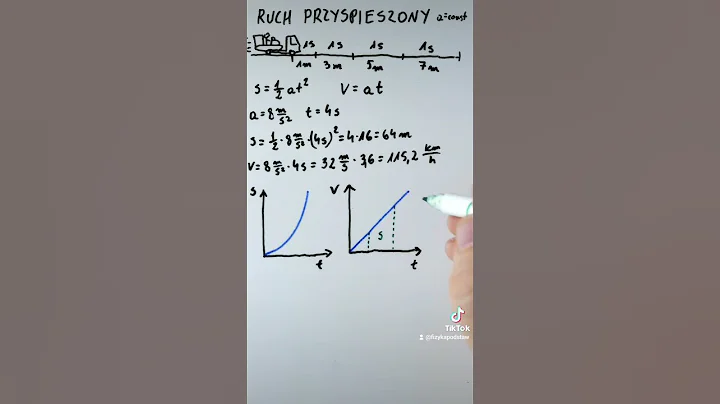 RUCH PRZYSPIESZONY a=const
1s 1s 1s 1s
1m 3m 5m 7m
s=½at² V=at
a=8 m/s² t=4s
s=½·8 m/s²·(4s)²=4·16=64m
V=8 m/s²·4s=32 m/s·3,6=115,2 km/h
s V
s
t t
TikTok
@fizykapodobno